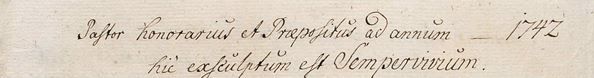 Pastor honorarius et Præpositus ad annum — 1742
hic exsculptum est Sempervivium.